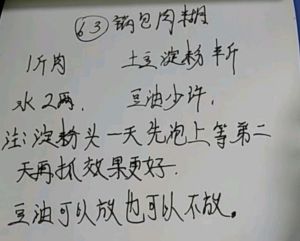 63 锅包肉糊
1斤肉 土豆淀粉半斤
水2两, 豆油少许,
注:淀粉头一天先泡上等第二
天再抓效果更好.
豆油可以放也可以不放。